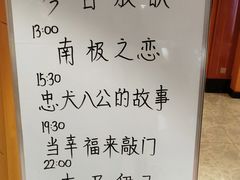 今日放映
13:00
南极之恋
15:30
忠犬八公的故事
19:30
当幸福来敲门
22:00